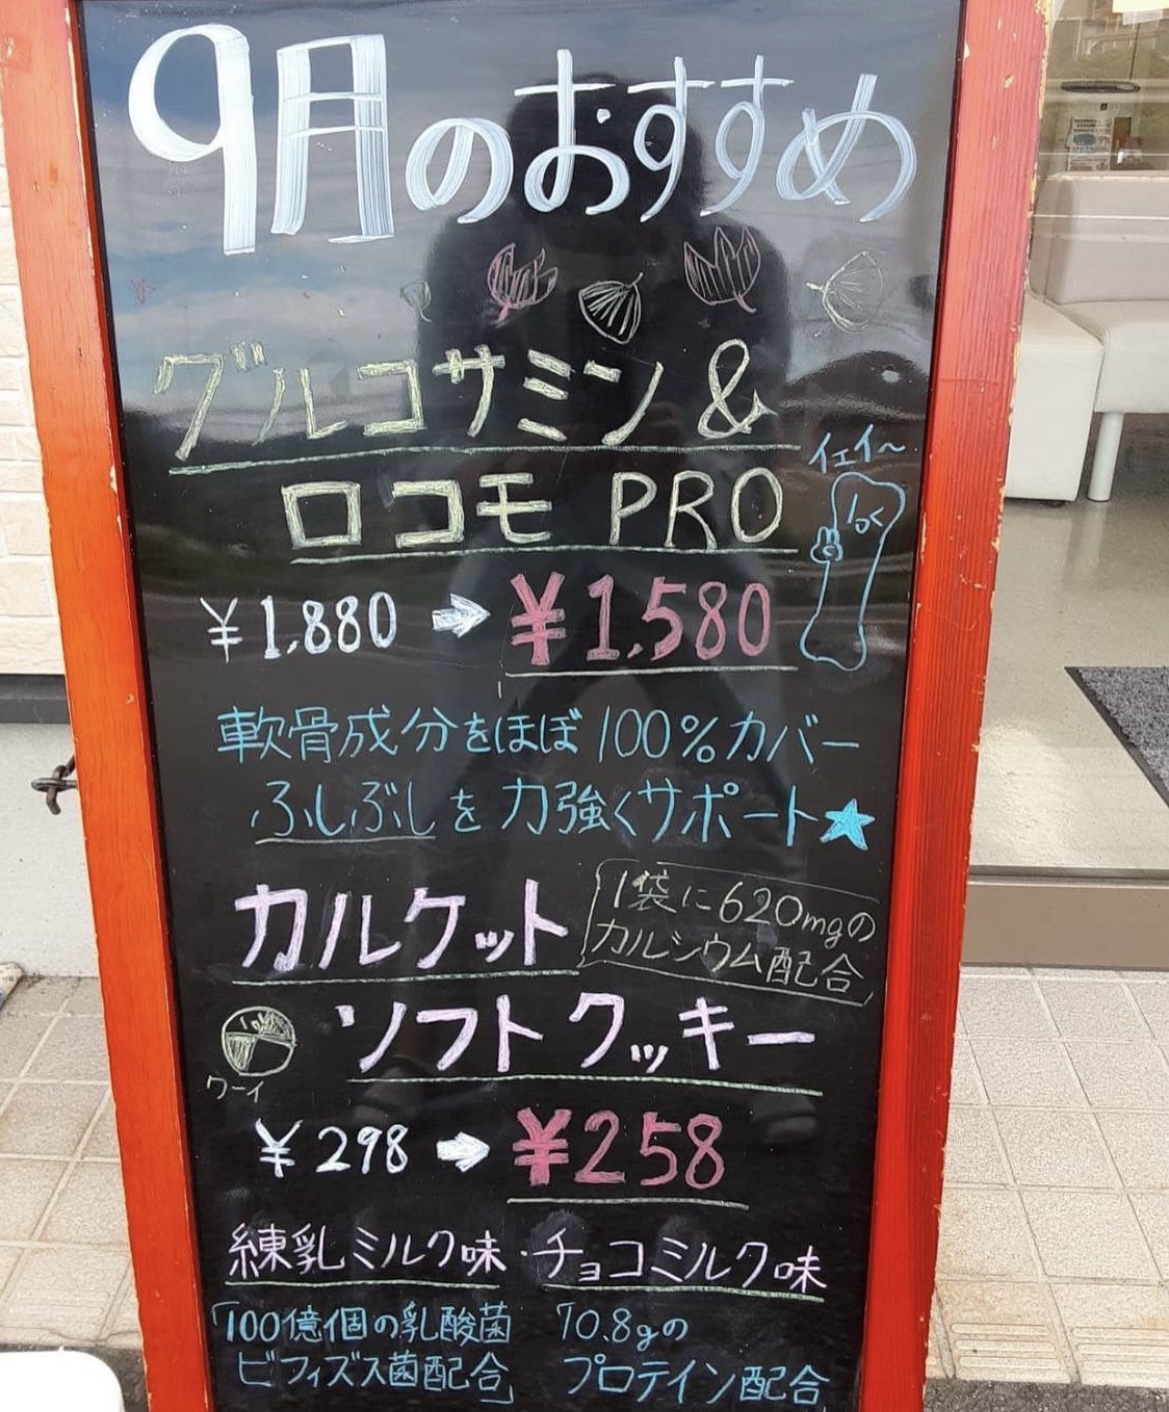 9月のおすすめ
グルコサミン&
イェイ~
ロコモ PRO
¥1,880 ➡ ¥1,580
軟骨成分をほぼ100%カバー
ふしぶしを力強くサポート★
カルケット
1袋に620mgの
カルシウム配合
ソフトクッキー
ワーイ
¥298 ➡ ¥258
練乳ミルク味・チョコミルク味
100億個の乳酸菌
ビフィズス菌配合
10.8gの
プロテイン配合